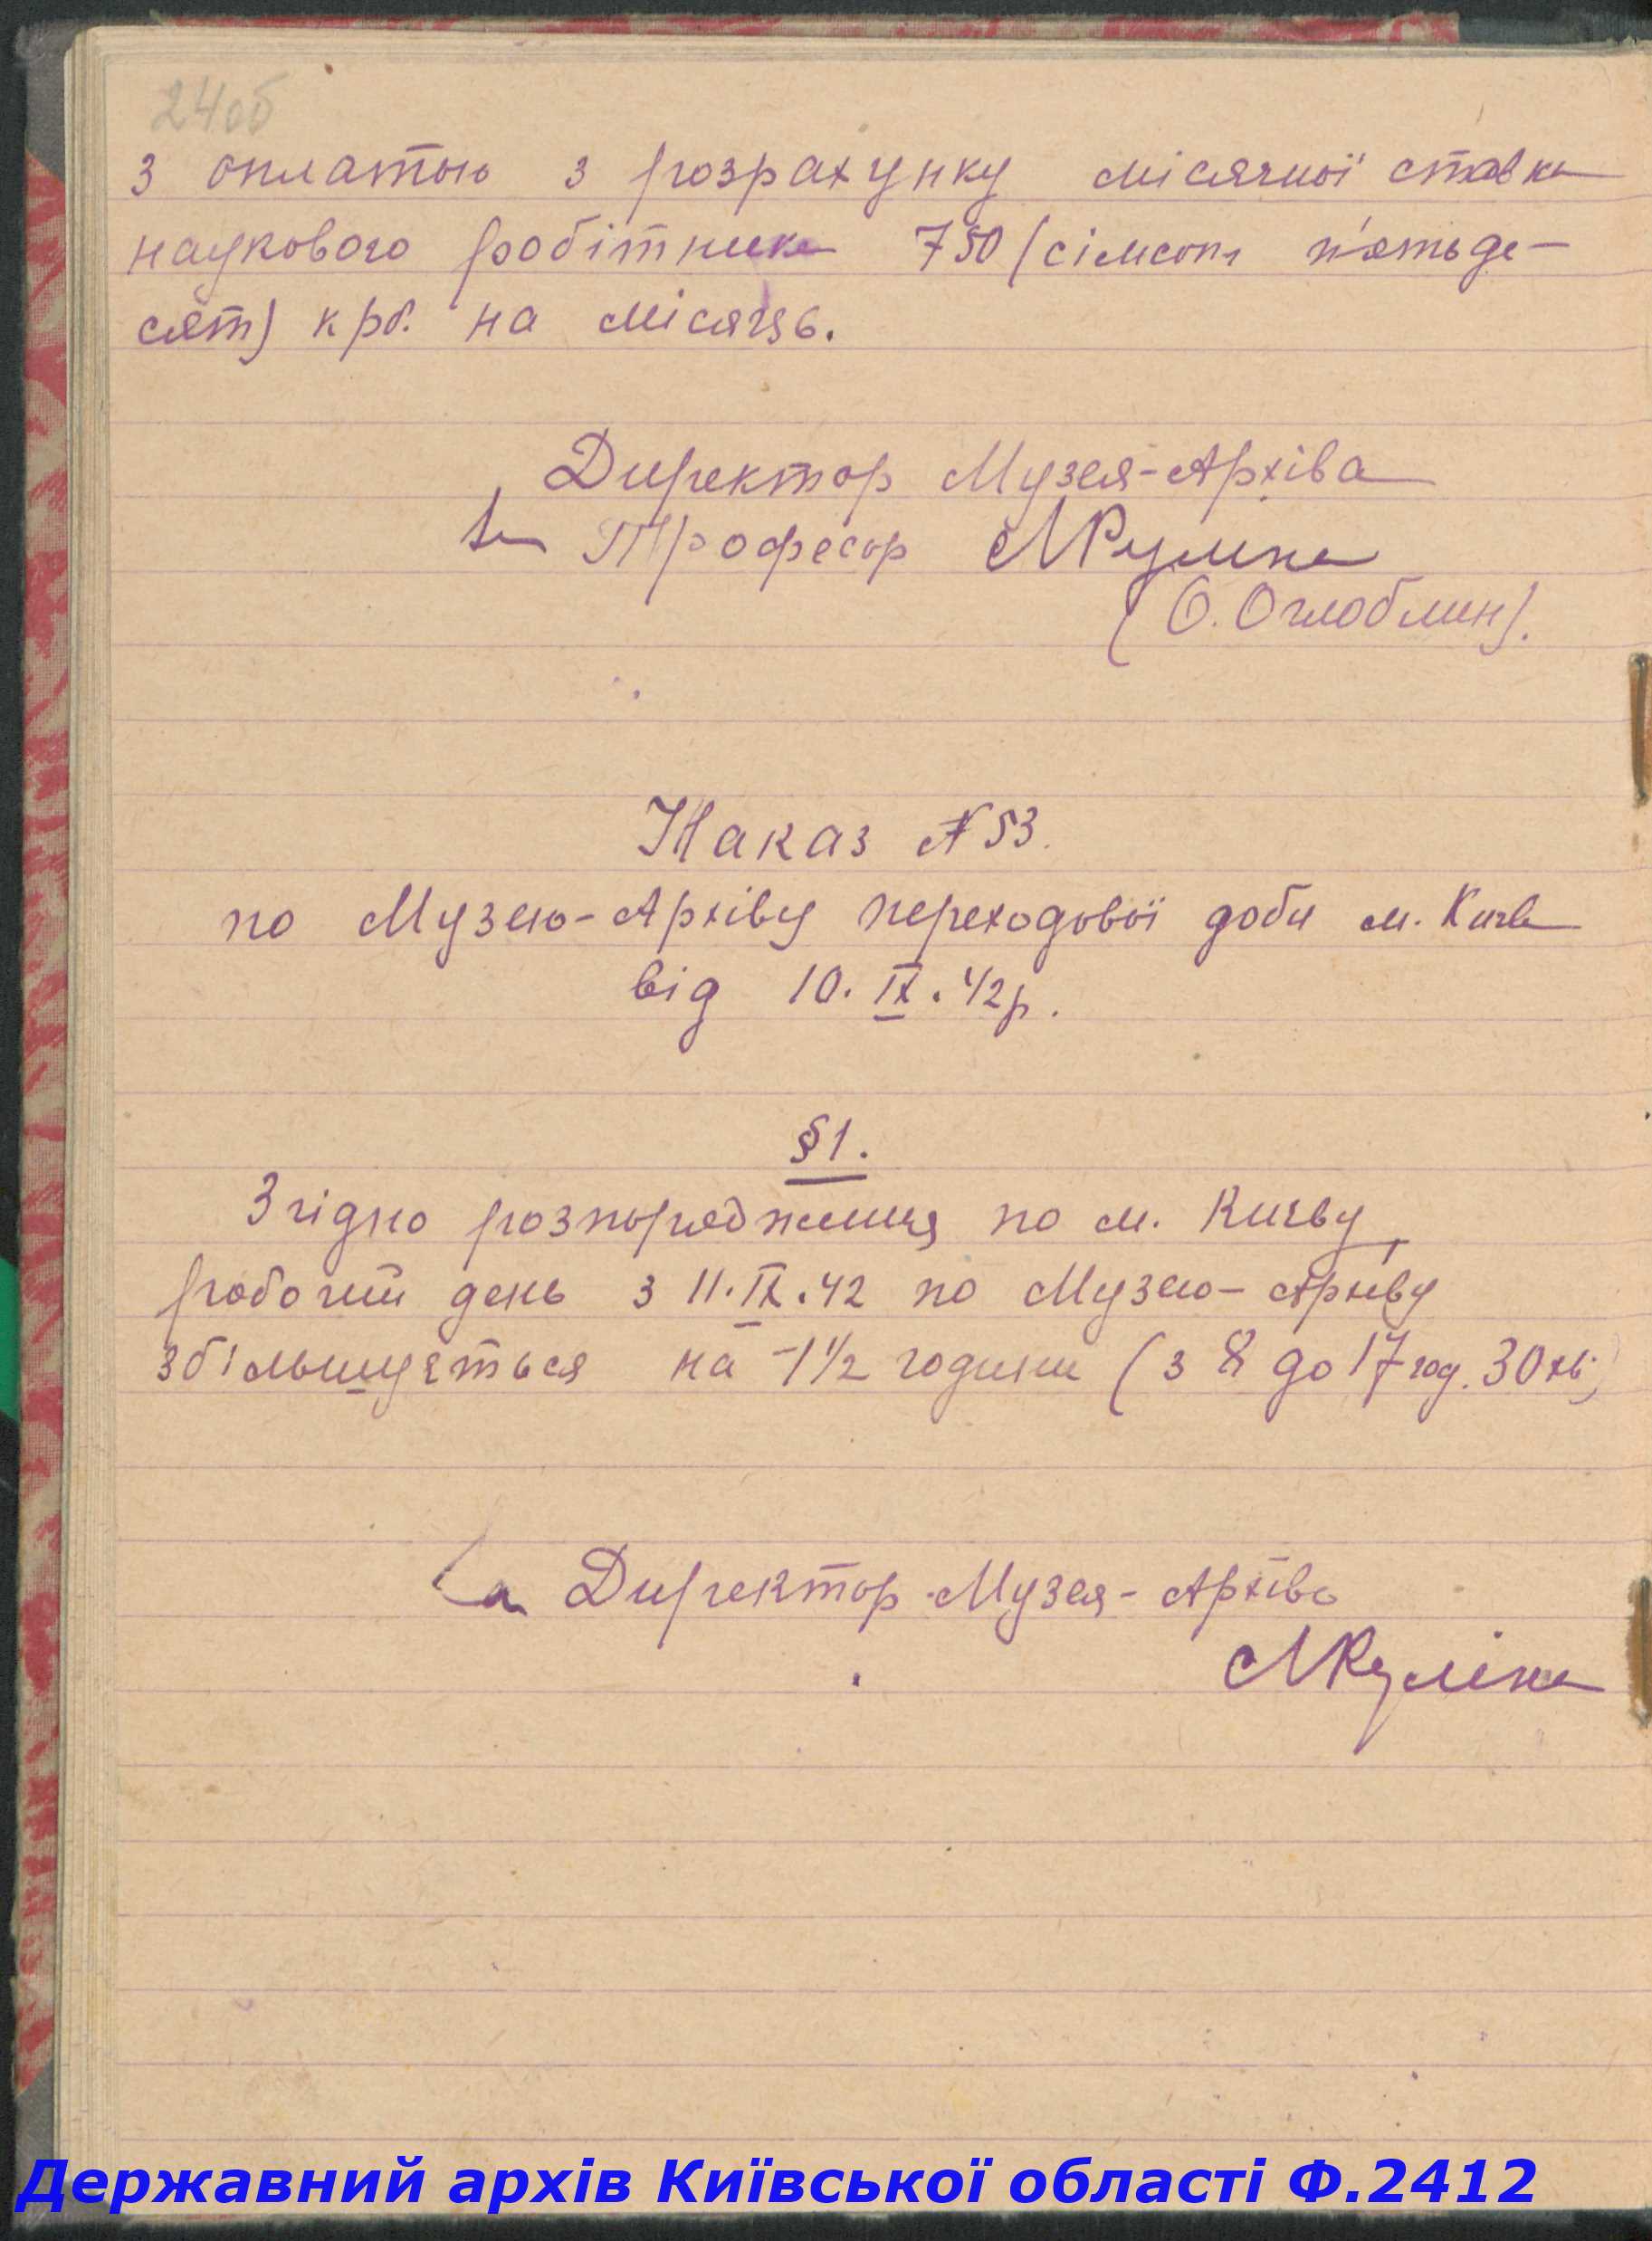 24об
з оплатою з розрахунку місячної ставки
наукового робітника 750 (сімсот п'ятьде-
сят) крб. на місяць.
Директор Музея-Архіва
За Професор
(О. Оглоблин).
Наказ №53.
по Музею-Архіву переходової доби м. Києва
від 10. IX. 42р.
§1.
Згідно розпорядження по м. Києву,
робочий день з 11. IX. 42 по Музею-Архіву
збільшується на 1½ години (з 8 до 17 год. 30 хв.)
За Директор Музея-Архіва
Державний архів Київської області Ф.2412